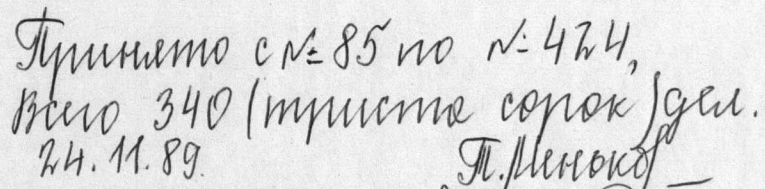 Принято с № 85 по № 424,
Всего 340 (триста сорок) дел.
24.11.89. П. Меньков